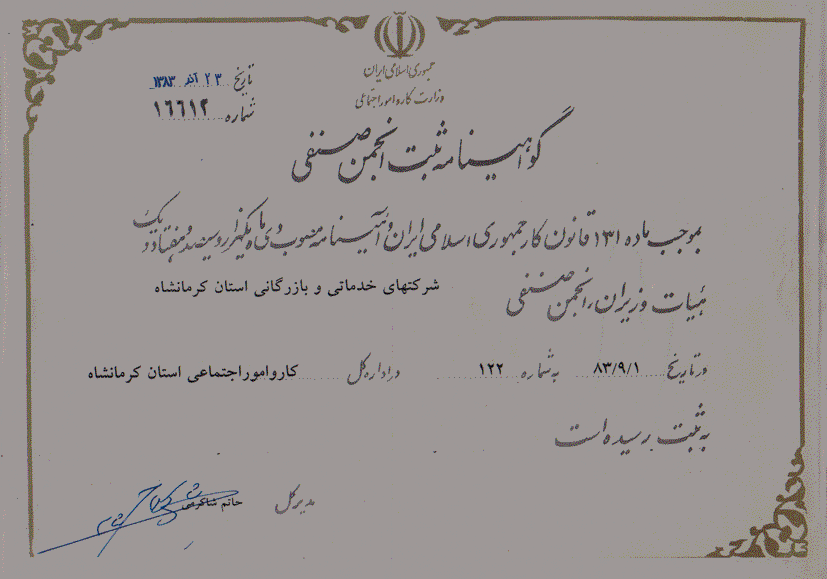 جمهوری اسلامی ایران
وزارت کار و امور اجتماعی
تاریخ ۲۳ آذر ۱۳۸۳
شماره ۱۶۶۱۲
گواهینامه ثبت انجمن صنفی
بموجب ماده ۱۳۱ قانون کار جمهوری اسلامی ایران و آئیننامه مصوب دی ماه یکهزار و سیصد و هفتاد و یک
هیات وزیران، انجمن صنفی شرکتهای خدماتی و بازرگانی استان کرمانشاه
در تاریخ ۸۳/۹/۱ به شماره ۱۲۲ در اداره کل کارواموراجتماعی استان کرمانشاه
به ثبت رسیده است
مدیرکل
حاتم شاکرمی